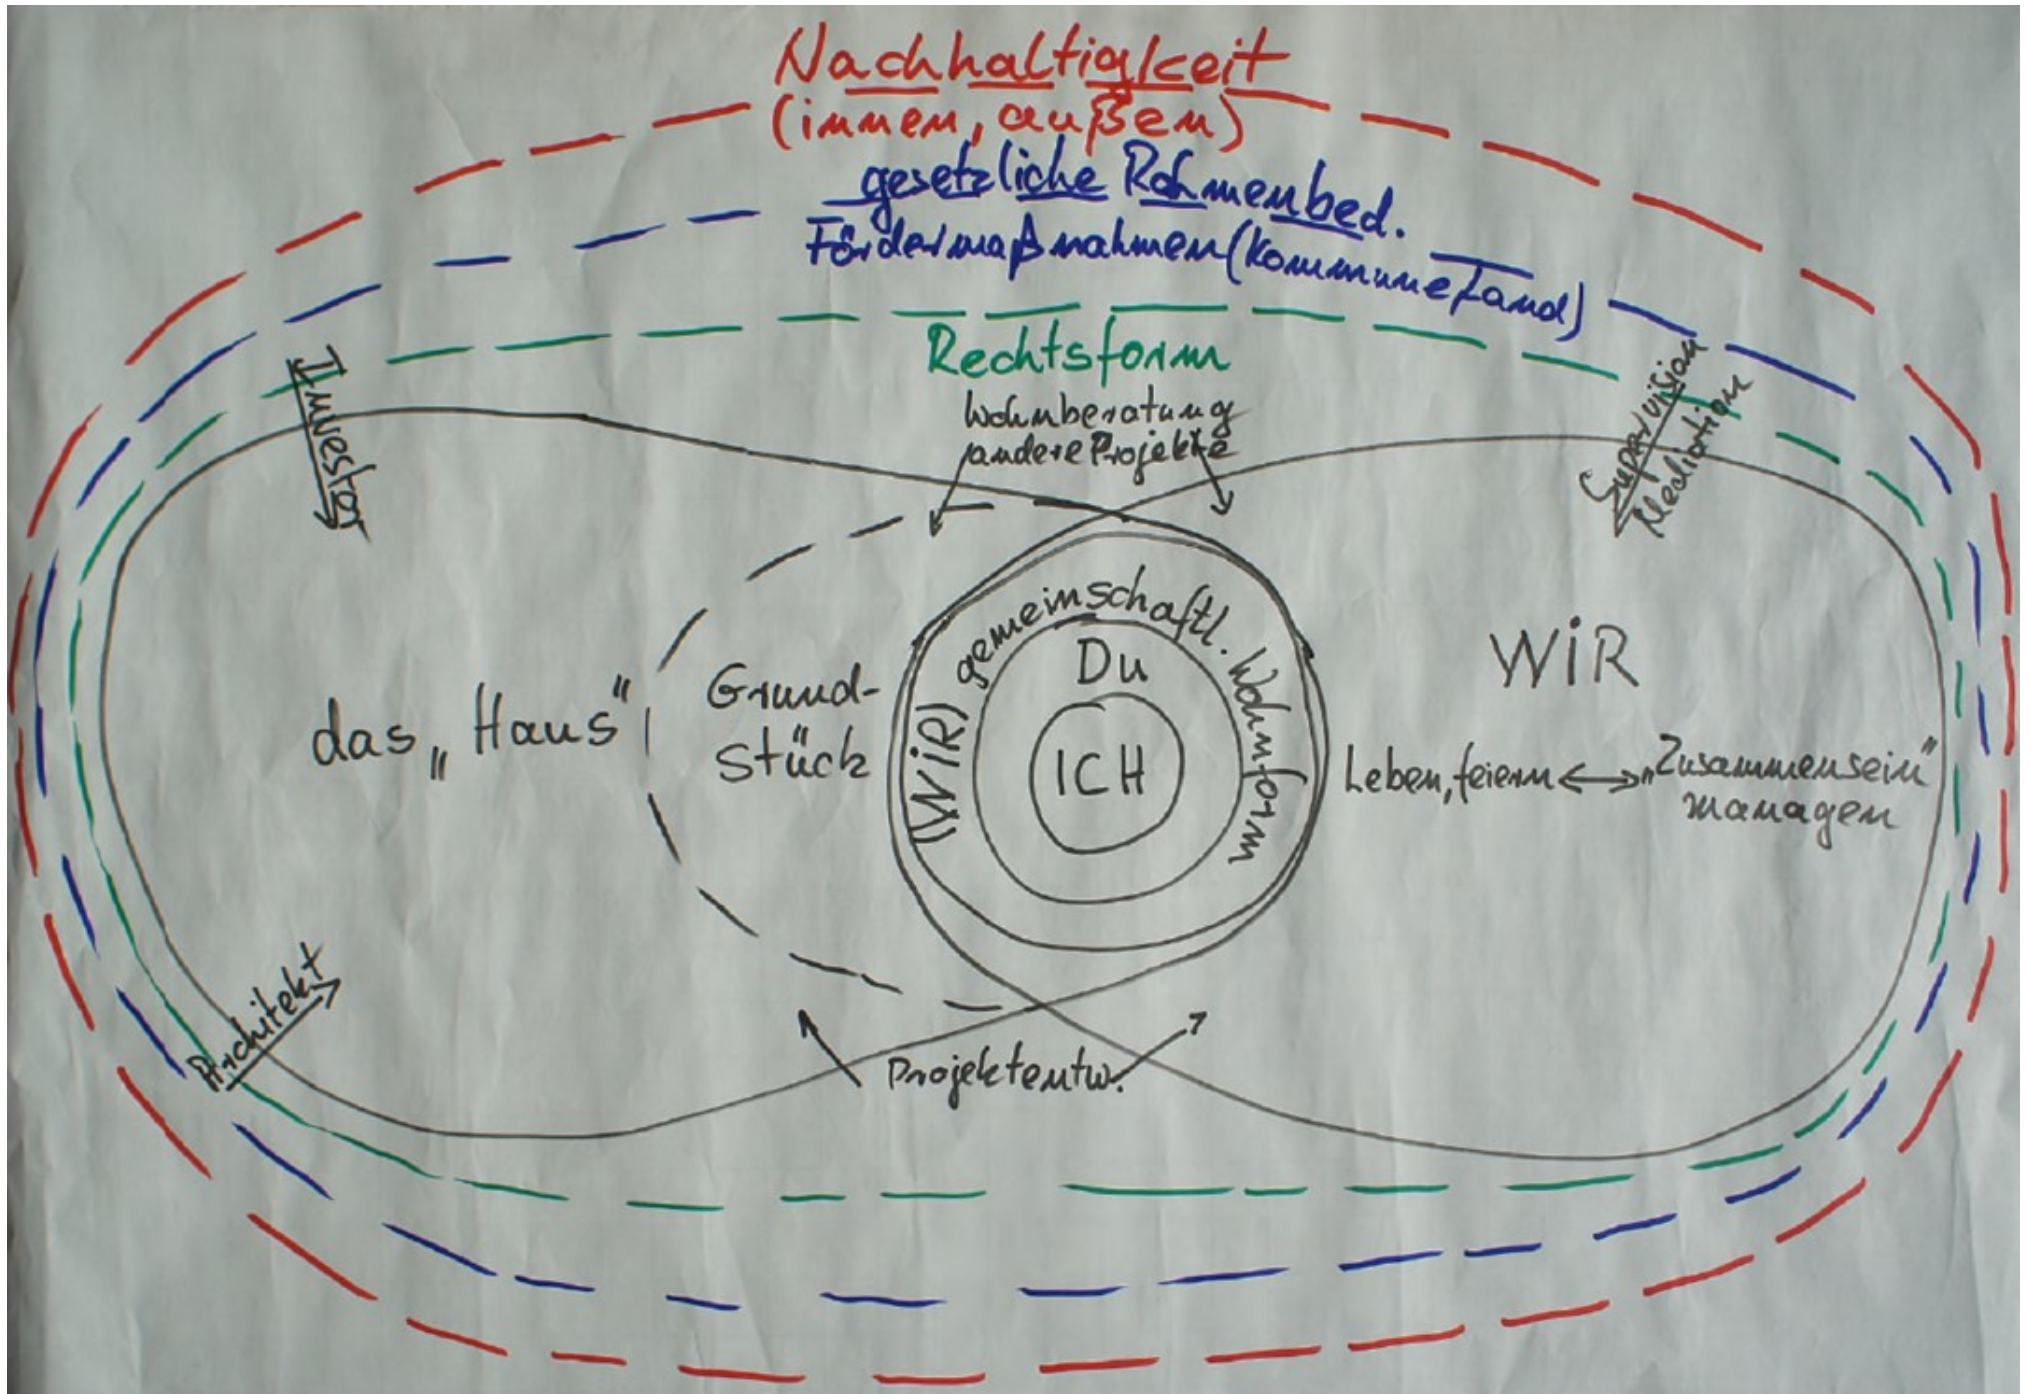 Nachhaltigkeit
(innen, außen)
gesetzliche Rahmenbed.
Fördermaßnahmen (Kommune Land)
Rechtsform
Wohnberatung
andere Projekte
Investor
Supervision
Mediation
das „Haus"
Grund-
stück
(WiR) gemeinschaftl. Wohnform
Du
ICH
WiR
Leben, feiern ↔ „Zusammensein"
managen
Architekt
Projektentw.